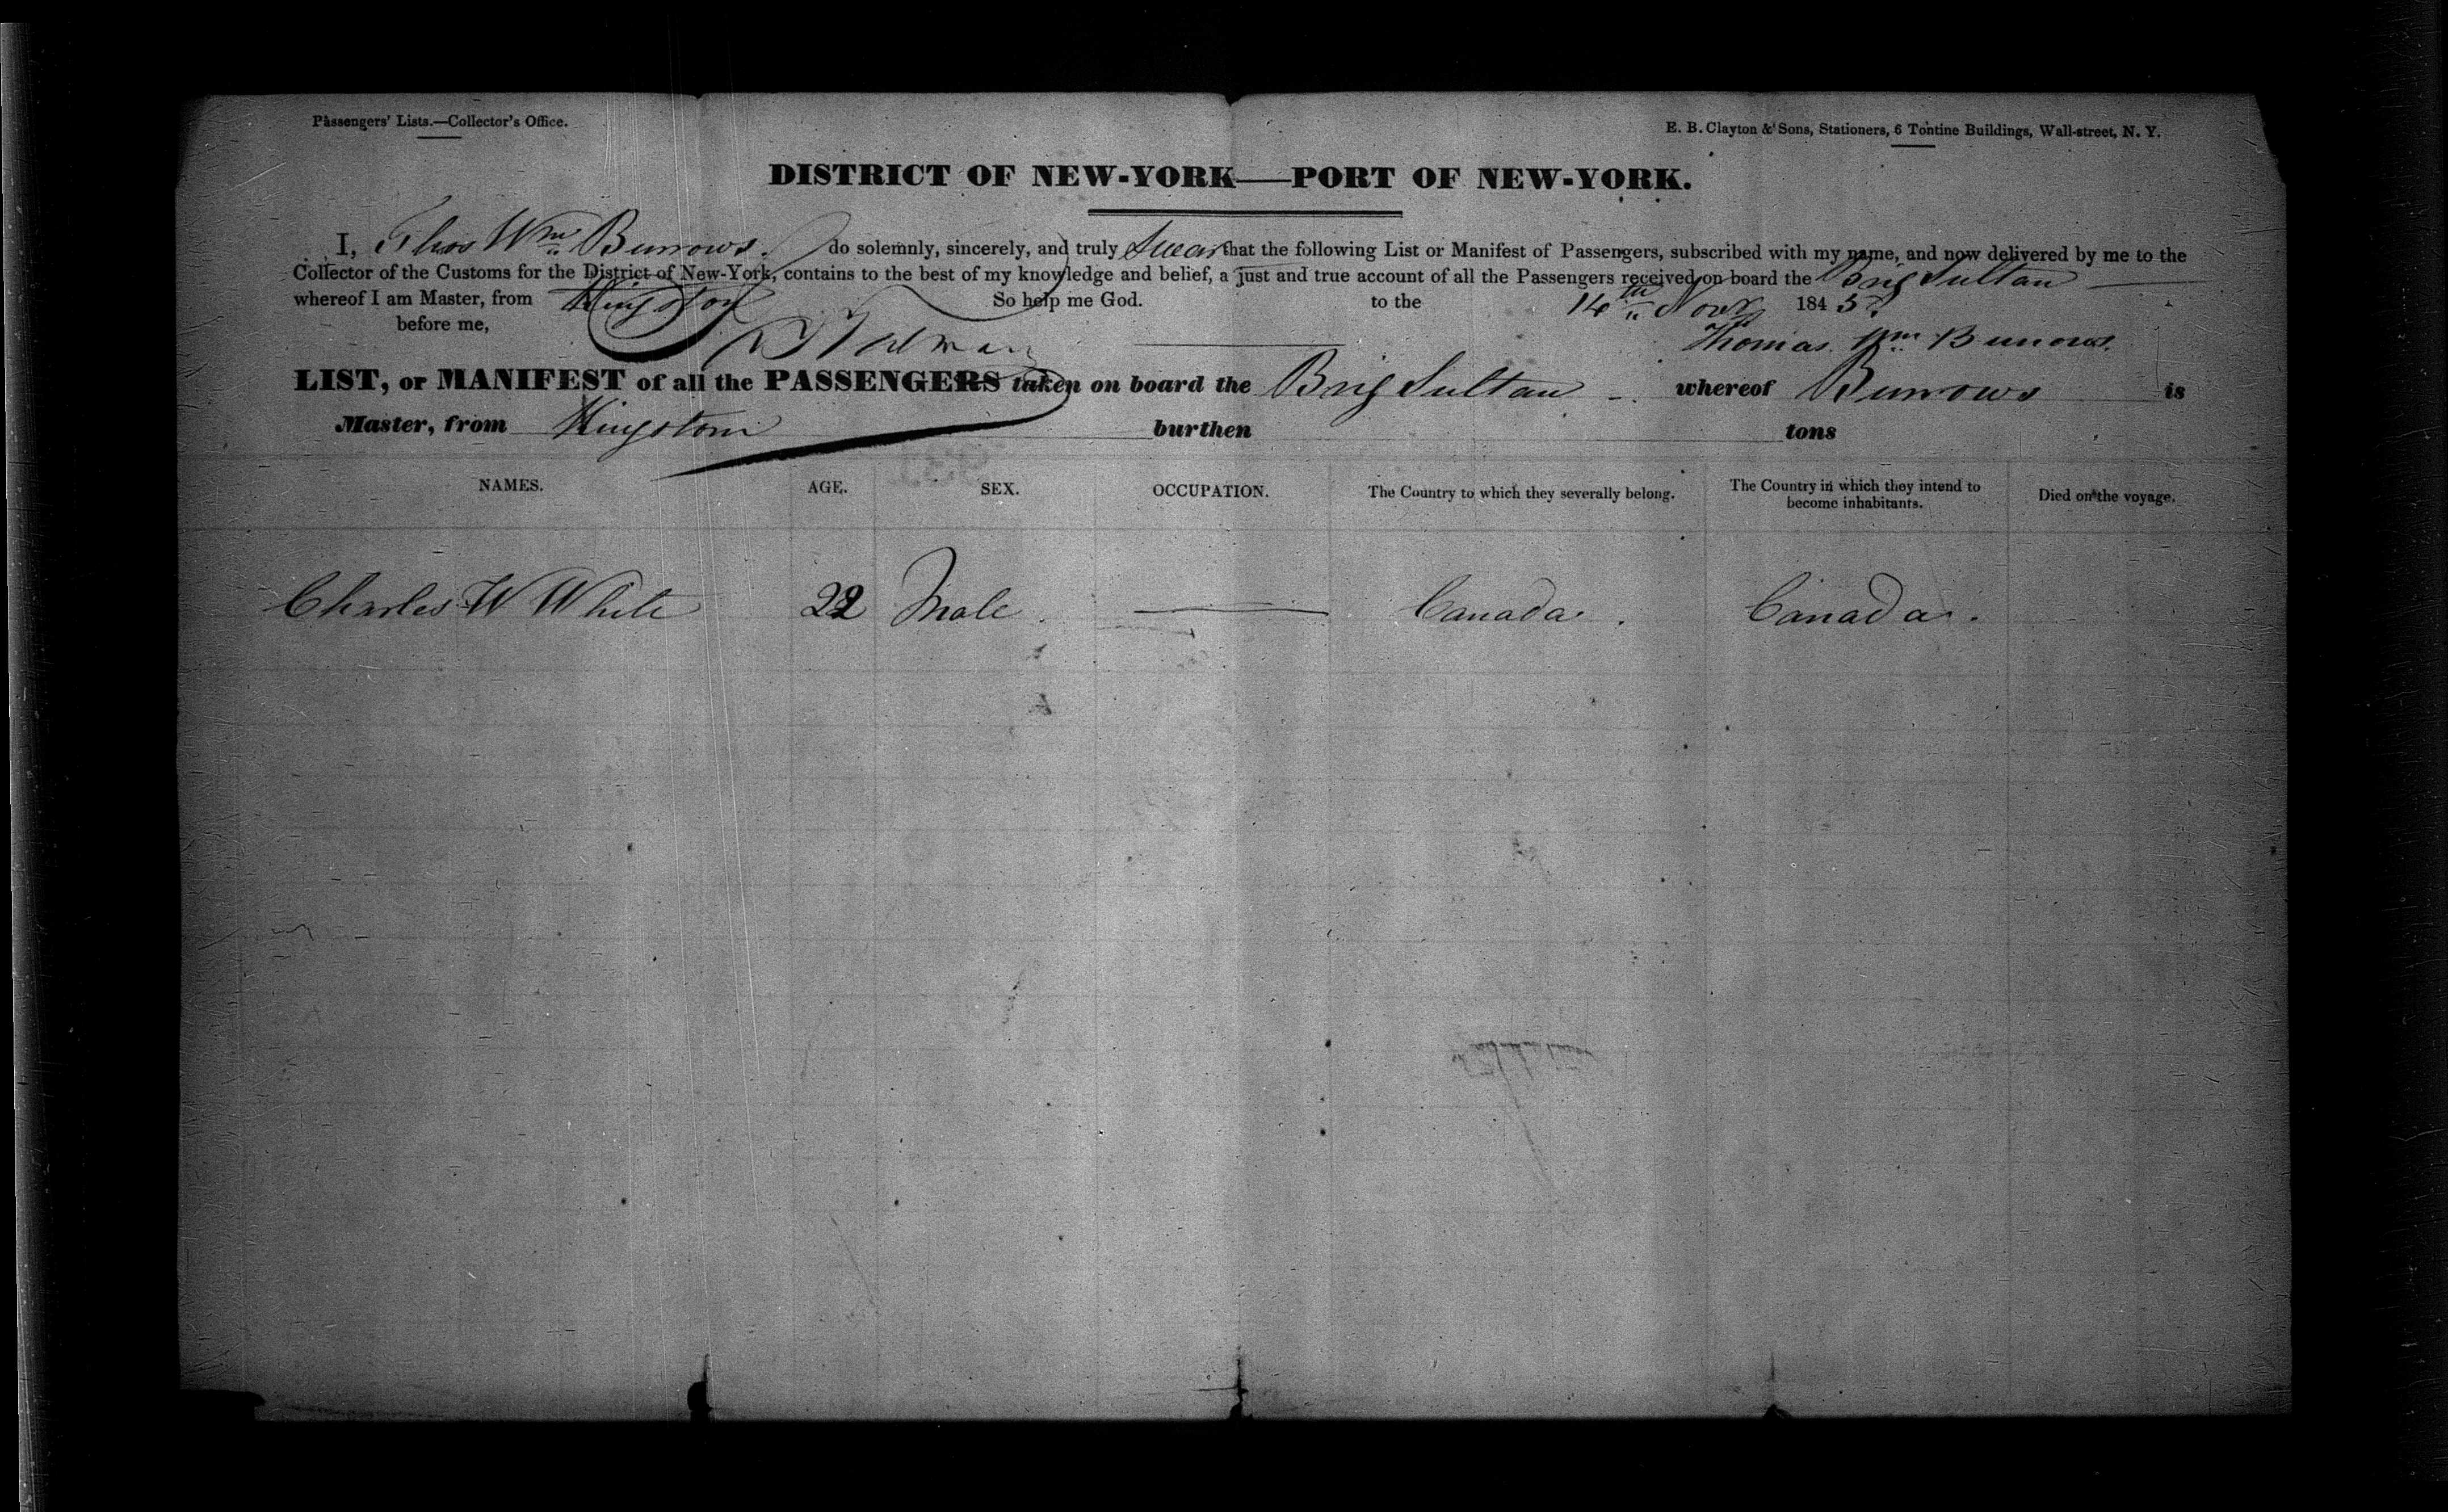 Passengers' Lists.—Collector's Office.
E. B. Clayton & Sons, Stationers, 6 Tontine Buildings, Wall-street, N. Y.
DISTRICT OF NEW-YORK—PORT OF NEW-YORK.
I, Thos Wm Burrows. do solemnly, sincerely, and truly Swear that the following List or Manifest of Passengers, subscribed with my name, and now delivered by me to the
Collector of the Customs for the District of New-York, contains to the best of my knowledge and belief, a just and true account of all the Passengers received on board the Brig Sultan
whereof I am Master, from Kingston So help me God. to the 14th Novr 1845.
before me, Thomas Wm Burrows.
LIST, or MANIFEST of all the PASSENGERS taken on board the Brig Sultan whereof Burrows is
Master, from Kingston burthen tons
NAMES. AGE. SEX. OCCUPATION. The Country to which they severally belong. The Country in which they intend to become inhabitants. Died on the voyage.
Charles W White 22 Male. — Canada. Canada.